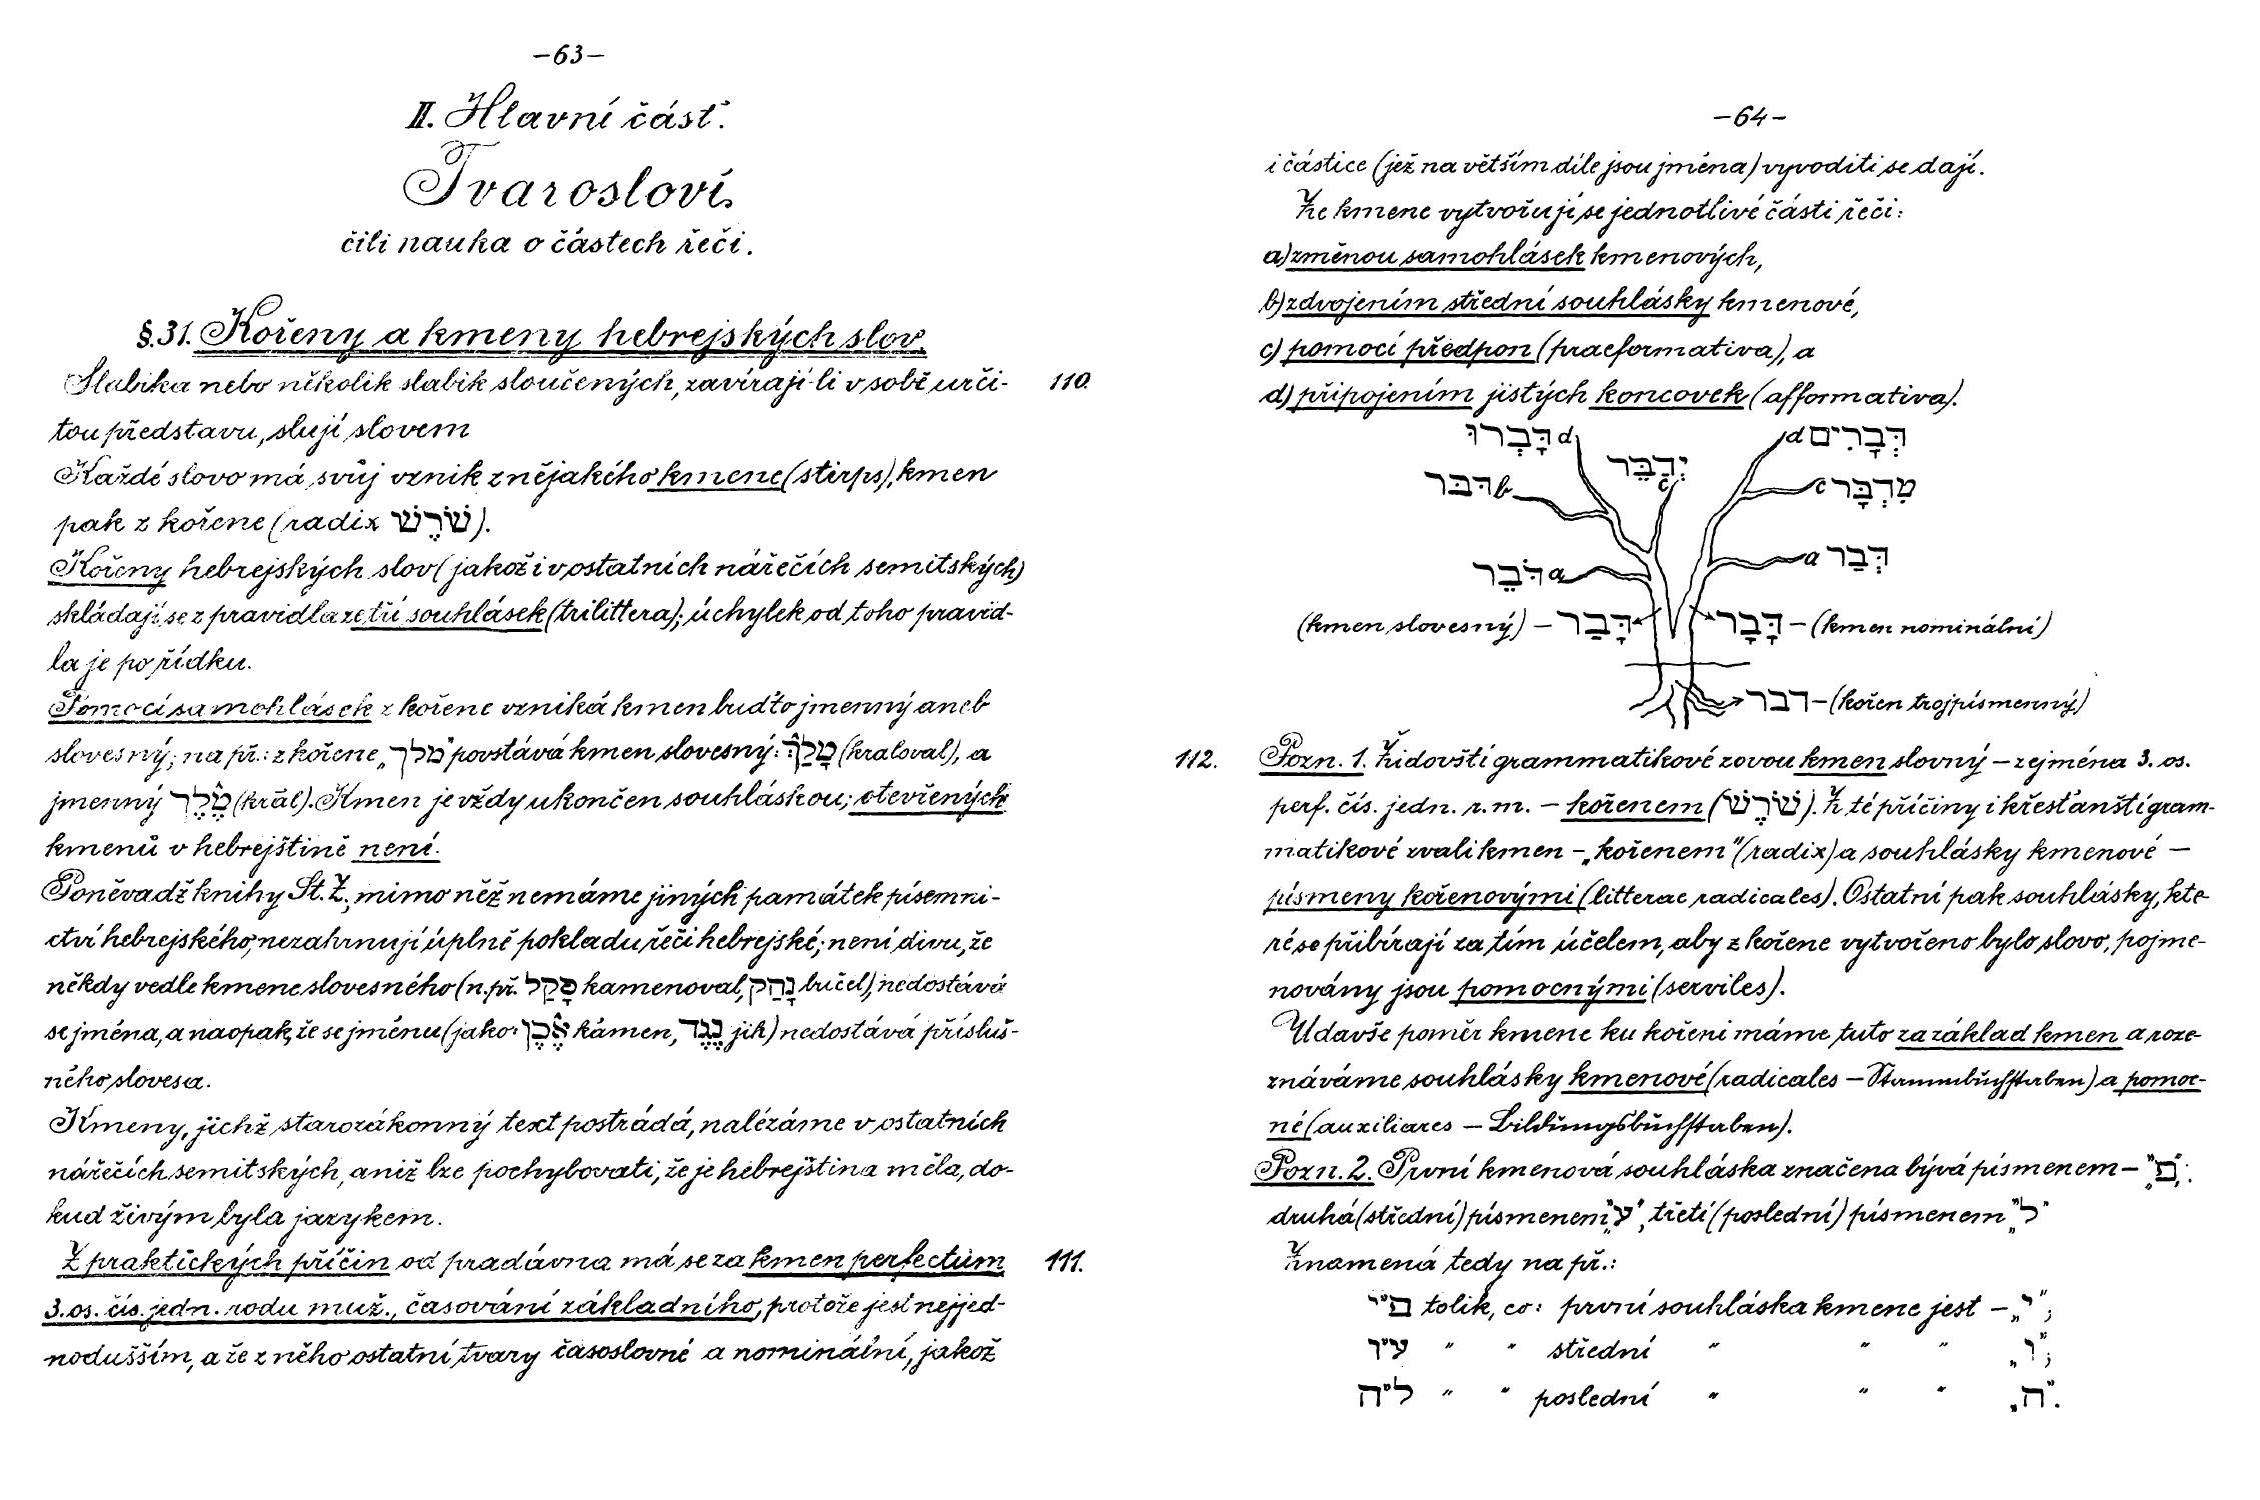 –63–
II. Hlavní část.
Tvarosloví,
čili nauka o částech řeči.
§.31. Kořeny a kmeny hebrejských slov.
Slabika nebo několik slabik sloučených, zavírají-li v sobě urči- 110.
tou představu, slují slovem
Každé slovo má svůj vznik z nějakého kmene (stirps), kmen
pak z kořene (radix שֹׁרֶשׁ).
Kořeny hebrejských slov (jakož i v ostatních nářečích semitských)
skládají se z pravidla ze tří souhlásek (trilittera); úchylek od toho pravid-
la je po řídku.
Pomocí samohlásek z kořene vzniká kmen buďto jmenný aneb
slovesný; na př.: z kořene „מלך" povstává kmen slovesný: מָלַךְ (kraloval), a
jmenný מֶלֶךְ (král). Kmen je vždy ukončen souhláskou; otevřených
kmenů v hebrejštině není.
Poněvadž knihy St. Z., mimo něž nemáme jiných památek písemni-
ctví hebrejského, nezahrnují úplně pokladu řeči hebrejské; není divu, že
někdy vedle kmene slovesného (n. př. סָקַל kamenoval, נָהַק bučel), nedostává
se jména, a naopak, že se jménu (jako: אֶבֶן kámen, נֶגֶד jih) nedostává přísluš-
ného slovesa.
Kmeny, jichž starozákonný text postrádá, nalézáme v ostatních
nářečích semitských, aniž lze pochybovati, že je hebrejština měla, do-
kud živým byla jazykem.
Z praktických příčin od pradávna má se za kmen perfectum 111.
3. os. čís. jedn. rodu muž., časování základního, protože jest nejjed-
nodušším, a že z něho ostatní tvary časoslovné a nominální, jakož
–64–
i částice (jež na větším díle jsou jména) vyvoditi se dají.
Ze kmene vytvořují se jednotlivé části řeči:
a) změnou samohlásek kmenových,
b) zdvojením střední souhlásky kmenové,
c) pomocí předpon (praeformativa), a
d) připojením jistých koncovek (afformativa).
דָּבְרוּ d d דְּבָרִים
יְדַבֵּר c
דבּר b c מִדְבָּר
דֹּבֵר a a דְּבַר
(kmen slovesný) – דָּבַר דָּבָר – (kmen nominální)
דבר – (kořen trojpísmenný)
112. Pozn. 1. Židovští grammatikové zovou kmen slovný – zejména 3. os.
perf. čís. jedn. r. m. – kořenem (שֹׁרֶשׁ). Z té příčiny i křesťanští gram-
matikové zvali kmen – „kořenem" (radix) a souhlásky kmenové –
písmeny kořenovými (litterae radicales). Ostatní pak souhlásky, kte-
ré se přibírají za tím účelem, aby z kořene vytvořeno bylo slovo, pojme-
novány jsou pomocnými (serviles).
Udavše poměr kmene ku kořeni máme tuto za základ kmen a roze-
znáváme souhlásky kmenové (radicales – Stammbuchstaben) a pomoc-
né (auxiliares – Bildungsbuchstaben).
Pozn. 2. První kmenová souhláska značena bývá písmenem – „פ";
druhá (střední) písmenem „ע", třetí (poslední) písmenem „ל"
Znamená tedy na př.:
פ״י tolik, co: první souhláska kmene jest – „י";
ע״ו " " střední " " " „ו";
ל״ה " " poslední " " " „ה".